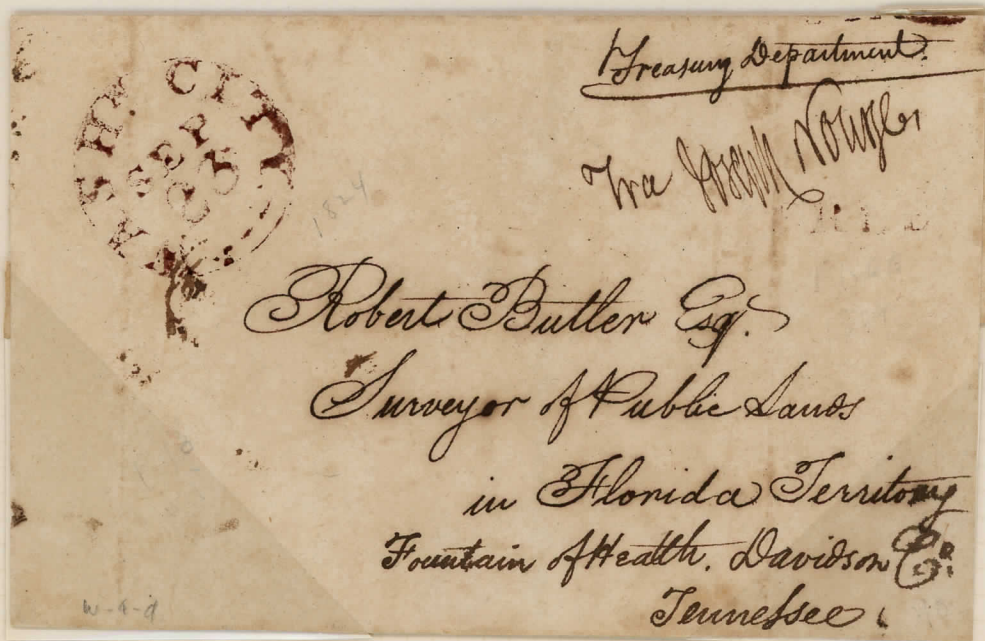 Treasury Department.
Joseph Nourse
WASHN CITY
SEP
1824
Robert Butler Esq.
Surveyor of Public Lands
in Florida Territory
Fountain of Health. Davidson Co.
Tennessee